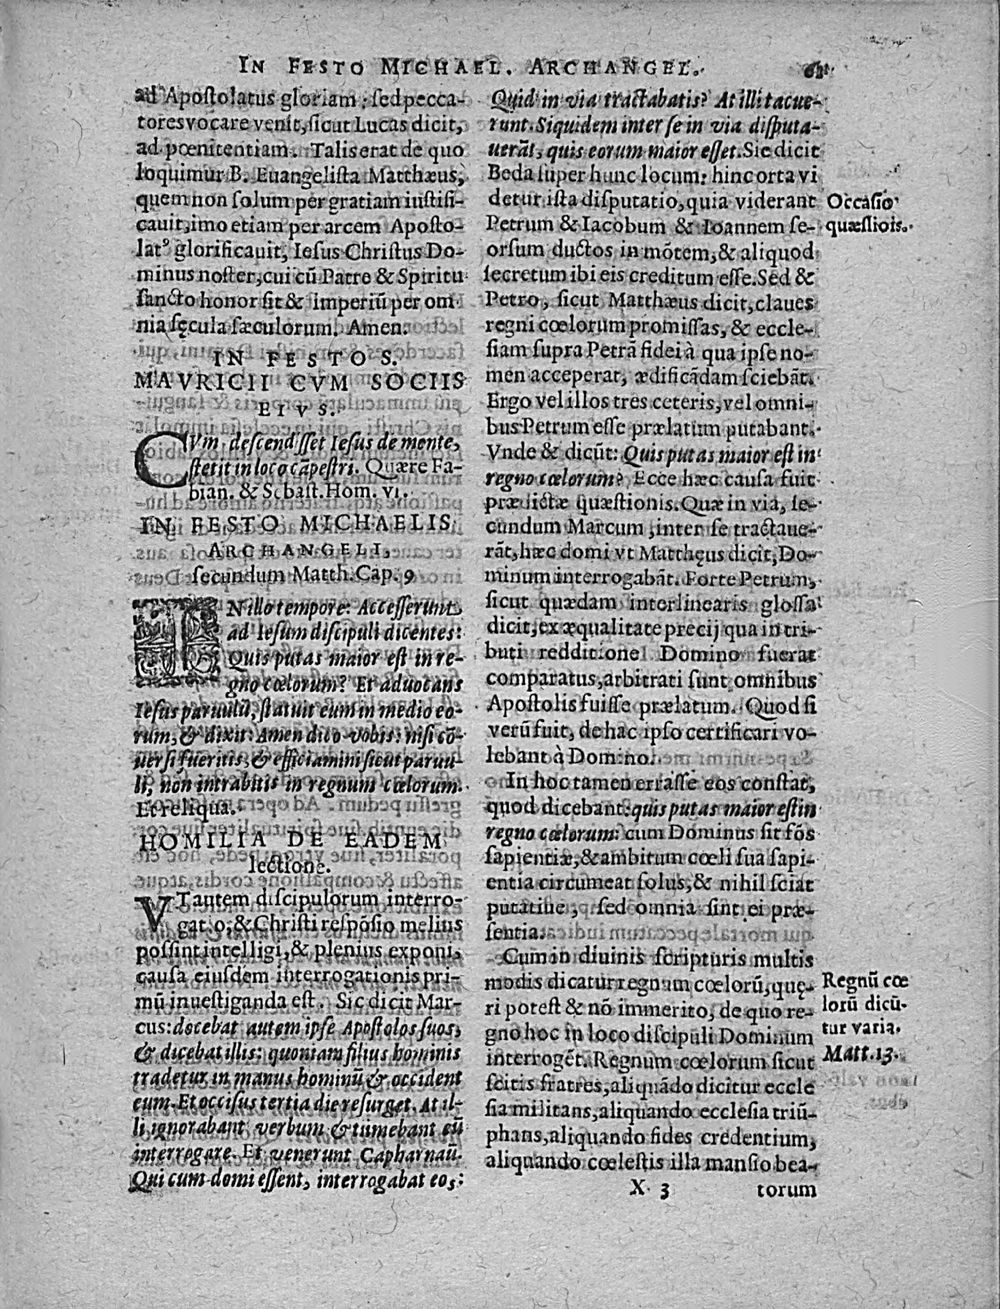 IN FESTO MICHAEL. ARCHANGEL.
ad Apostolatus gloriam; sed pecca-
tores vocare venit, sicut Lucas dicit,
ad pœnitentiam. Talis erat de quo
loquimur B. Euangelista Matthæus,
quem non solum per gratiam iustifi-
cauit, imo etiam per arcem Aposto-
lat⁹ glorificauit, Iesus Christus Do-
minus noster, cui cū Patre & Spiritu
sancto honor sit & imperiū per om
nia sęcula sæculorum. Amen.
IN FESTO S.
MAVRICII CVM SOCIIS
EIVS.
CVm descendisset Iesus de mente,
stetit in loco cāpestri. Quære Fa-
bian. & Sebast. Hom. vi.
IN FESTO MICHAELIS
ARCHANGELI,
secundum Matth. Cap. 9
IN illo tempore: Accesserunt
ad Iesum discipuli dicentes:
Quis putas maior est in re-
gno cœlorum? Et aduocans
Iesus paruulū, statuit eum in medio eo-
rum, & dixit: Amen dico vobis: nisi cō-
uersi fueritis, & efficiamini sicut paruu-
li, non intrabitis in regnum cœlorum.
Et reliqua.
HOMILIA DE EADEM
lectione.
VT autem discipulorum interro-
gatio, & Christi respōsio melius
possint intelligi, & plenius exponi,
causa eiusdem interrogationis pri-
mū inuestiganda est. Sic dicit Mar-
cus: docebat autem ipse Apostolos suos,
& dicebat illis: quoniam filius hominis
tradetur in manus hominū & occident
eum. Et occisus tertia die resurget. At il-
li ignorabant verbum & timebant eū
interrogare. Et venerunt Capharnaū.
Qui cum domi essent, interrogabat eos:
Quid in via tractabatis? At illi tacue-
runt. Siquidem inter se in via disputa-
uerāt, quis eorum maior esset. Sic dicit
Beda super hunc locum: hinc orta vi
detur ista disputatio, quia viderant
Petrum & Iacobum & Ioannem se-
orsum ductos in mōtem, & aliquod
secretum ibi eis creditum esse. Sed &
Petro, sicut Matthæus dicit, claues
regni cœlorum promissas, & eccle-
siam supra Petrā fidei à qua ipse no-
men acceperat, ædificādam sciebāt.
Ergo vel illos tres ceteris, vel omni-
bus Petrum esse prælatum putabant.
Vnde & dicūt: Quis putas maior est in
regno cœlorum? Ecce hæc causa fuit
prædictæ quæstionis. Quæ in via, se-
cundum Marcum, inter se tractaue-
rāt, hæc domi vt Matthęus dicit, Do-
minum interrogabāt. Forte Petrum,
sicut quædam interlinearis glossa
dicit, ex æqualitate precij qua in tri-
buti redditione Domino fuerat
comparatus, arbitrati sunt omnibus
Apostolis fuisse prælatum. Quod si
verū fuit, de hac ipso certificari vo-
lebant à Domino.
In hoc tamen errasse eos constat,
quod dicebant: quis putas maior est in
regno cœlorum: cum Dominus sit fōs
sapientiæ, & ambitum cœli sua sapi-
entia circumeat solus, & nihil sciat
putatiue, sed omnia sint ei præ-
sentia.
Cum in diuinis scripturis multis
modis dicatur regnum cœlorū, quę-
ri potest & nō immerito, de quo re-
gno hoc in loco discipuli Dominum
interrogēt. Regnum cœlorum sicut
scitis fratres, aliquādo dicitur eccle
sia militans, aliquando ecclesia triū-
phans, aliquando fides credentium,
aliquando cœlestis illa mansio bea-
X 3 torum
Occasio
quæstiois.
Regnū cœ
lorū dicū-
tur varia.
Matt. 13.